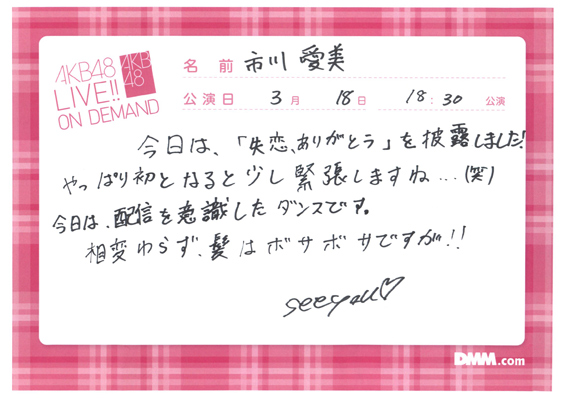 AKB48
LIVE!!
ON DEMAND
AKB
48
名前 市川 愛美
公演日 3月 18日 18:30 公演
今日は、「失恋、ありがとう」を披露しました!
やっぱり初となると少し緊張しますね...(笑)
今日は、配信を意識したダンスです。
相変わらず、髪はボサボサですが!!
see you♡
DMM.com